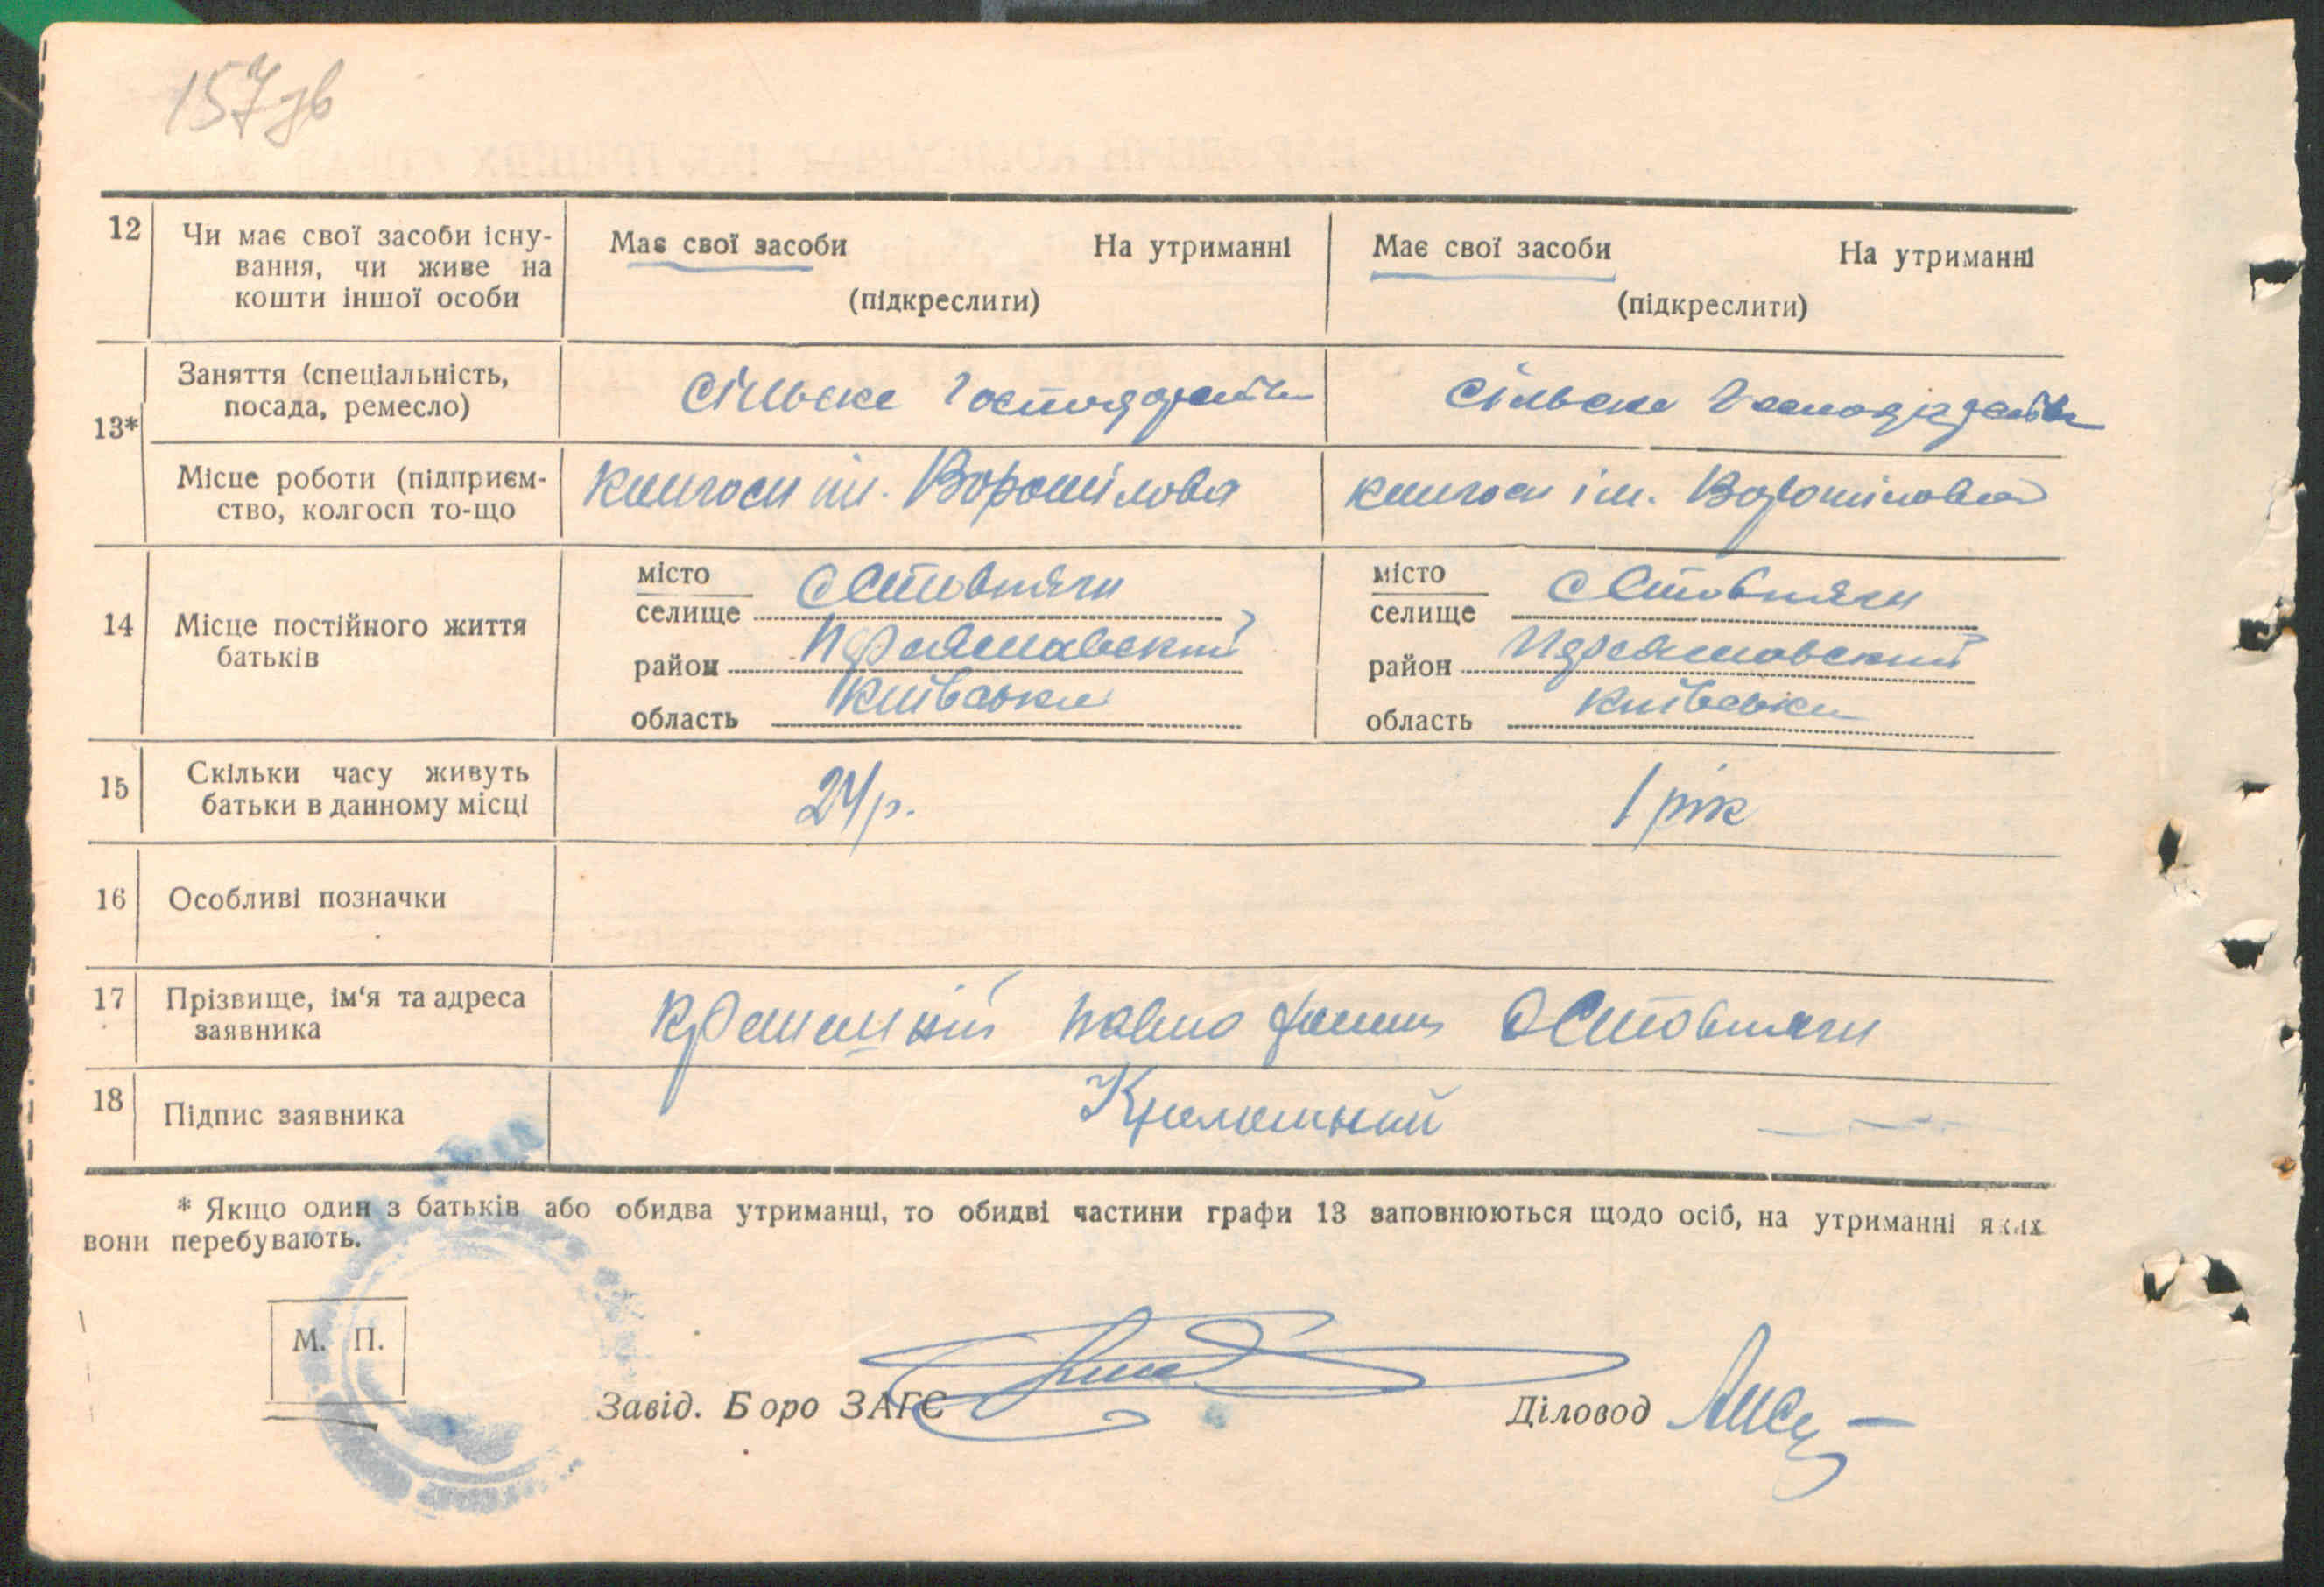 157 зв
12 Чи має свої засоби існу-
вання, чи живе на
кошти іншої особи
Має свої засоби На утриманні
(підкреслити)
Має свої засоби На утриманні
(підкреслити)
13*
Заняття (спеціальність,
посада, ремесло)
Сільське
Сільське
Місце роботи (підприєм-
ство, колгосп то-що
колгосп ім. Ворошілова
колгосп ім. Ворошілова
14 Місце постійного життя
батьків
місто
селище с Стовпяги
район
область Київська
місто
селище с Стовпяги
район
область Київська
15 Скільки часу живуть
батьки в данному місці
24 р.
1 рік
16 Особливі позначки
17 Прізвище, ім‘я та адреса
заявника
Павло Стовпяги
18 Підпис заявника
* Якщо один з батьків або обидва утриманці, то обидві частини графи 13 заповнюються щодо осіб, на утриманні яких
вони перебувають.
М. П.
Завід. Бюро ЗАГС
Діловод